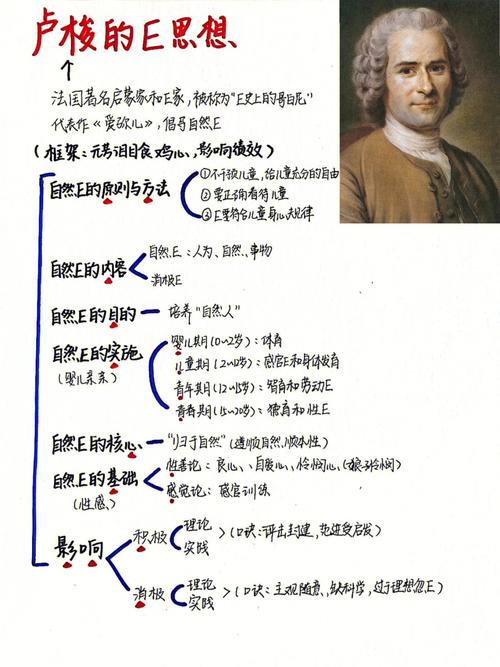 卢梭的E思想
↑
法国著名启蒙家和E家,被称为"E史上的哥白尼"
代表作《爱弥儿》,倡导自然E
自然E的原则与方法
①不干预儿童,给儿童充分的自由
②要正确看待儿童
③E要符合儿童身心规律
自然E的内容
自然E:人为、自然、事物
消极E
自然E的目的 — 培养"自然人"
自然E的实施
婴儿期(0~2岁):体育
儿童期(2~12岁):感官E和身体发育
青年期(12~15岁):智育和劳动E
青春期(15~20岁):德育和性E
自然E的核心 — "归于自然"(遵顺自然,顺本性)
自然E的基础
(性感)
性善论:良心、自爱心、怜悯心
感觉论:感官训练
影响
积极
理论
实践
>(口诀:评击封建,
消极
理论
实践
>(口诀:主观随意,缺科学,过于理想忽E)